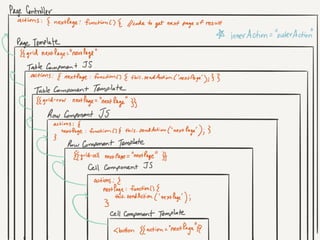 Page Controller
actions: { nextPage: function() { //code to get next page of result
☆ innerAction="outerAction"
Page Template
{{grid nextPage="nextPage"
Table Component JS
actions: { nextPage: function() { this.sendAction('nextPage'); } }
Table Component Template
{{grid-row nextPage="nextPage" }}
Row Component JS
actions: {
nextPage: function() { this.sendAction('nextPage'); }
}
Row Component Template
{{grid-cell nextPage="nextPage" }}
Cell Component JS
actions: {
nextPage: function() {
this.sendAction('nextPage');
}
Cell Component Template
<button {{action="nextPage"}}